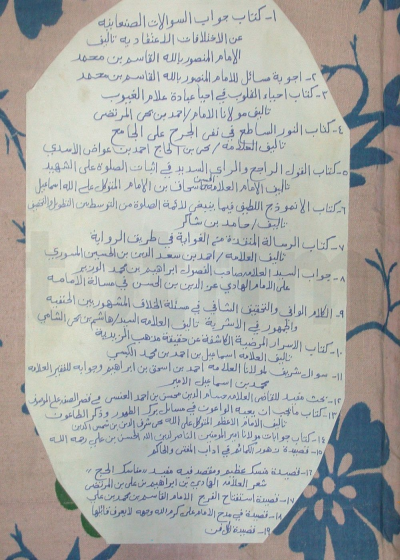 ١- كتاب جواب السؤالات الصنعانيه
عن الاختلافات الاعتقاديه تأليف
الإمام المنصور بالله القاسم بن محمد
٢- اجوبة مسائل للامام المنصور بالله القاسم بن محمد
٣- كتاب احياء القلوب في احياء عبادة علام الغيوب
تأليف مولانا الامام /احمد بن يحيى المرتضى
٤- كتاب النور الساطع في نفي الجرح على الجامع
تأليف العلامه / يحيى بن الحاج احمد بن عواض الأسدي
٥- كتاب القول الراجح والرأي السديد في اثبات الصلوة على الشهيد
تأليف الإمام العلامه الحسن بن الامام المتوكل على الله اسماعيل
٦- كتاب الانموذج اللطيف فيما ينبغي لائمة الصلوة من التوسط بين التطويل والتخفيف
تأليف / حامد بن شاكر
٧- كتاب الرسالة المنقذة من الغواية في طريق الرواية
تأليف العلامه / احمد بن سعد الدين بن الحسين المسوري
٨- جواب السيد العلامه صاحب الفصول ابراهيم بن محمد الوزير
على الامام الهادي عز الدين بن الحسن في مسئلة الامامه
٩- الكلام الوافي والتحقيق الشافي في مسئلة الخلاف المشهور بين الحنفيه
والجمهور في الأسرية تأليف العلامه السيد/هاشم بن يحيى الشامي
١٠- كتاب الاسرار المرضية الكاشفة عن حقيقة مذهب الزيدية
تأليف العلامه اسماعيل بن احمد بن محمد الكبسي
١١- سوال شريف لمولانا العلامه احمد بن اسحق بن ابراهيم وجوابه للبدر العلامه
محمد بن اسماعيل الامير
١٢- بحث مفيد للقاضي العلامه حسام الدين محسن بن احمد العنسي في قصر الصفه على الموصوف
١٣- كتاب مايجب ان يعيه الواعون في مسائل الطهور وذكر الطاعون
تأليف الامام الاعظم المتوكل على الله يحيى شرف الدين بن شمس الدين
١٤- كتاب جوابات مولانا امير المؤمنين الناصر لدين الله الحسن بن علي رحمه الله
١٥- قصيدة زهور الكمائم في اداب المفتي والحاكم
١٦- قصيدة منسك عظيم ومقصد فيه مفيد مناسك الحج
شعر العلامه الهادي بن ابراهيم بن علي بن المرتضى
١٧- قصيدة استفتاح الفرج الإمام القاسم بن محمد بن علي
١٨- قصيدة في مدح الامام علي كرم الله وجهه لا يعرف قائلها
١٩- قصيدة لكل فن